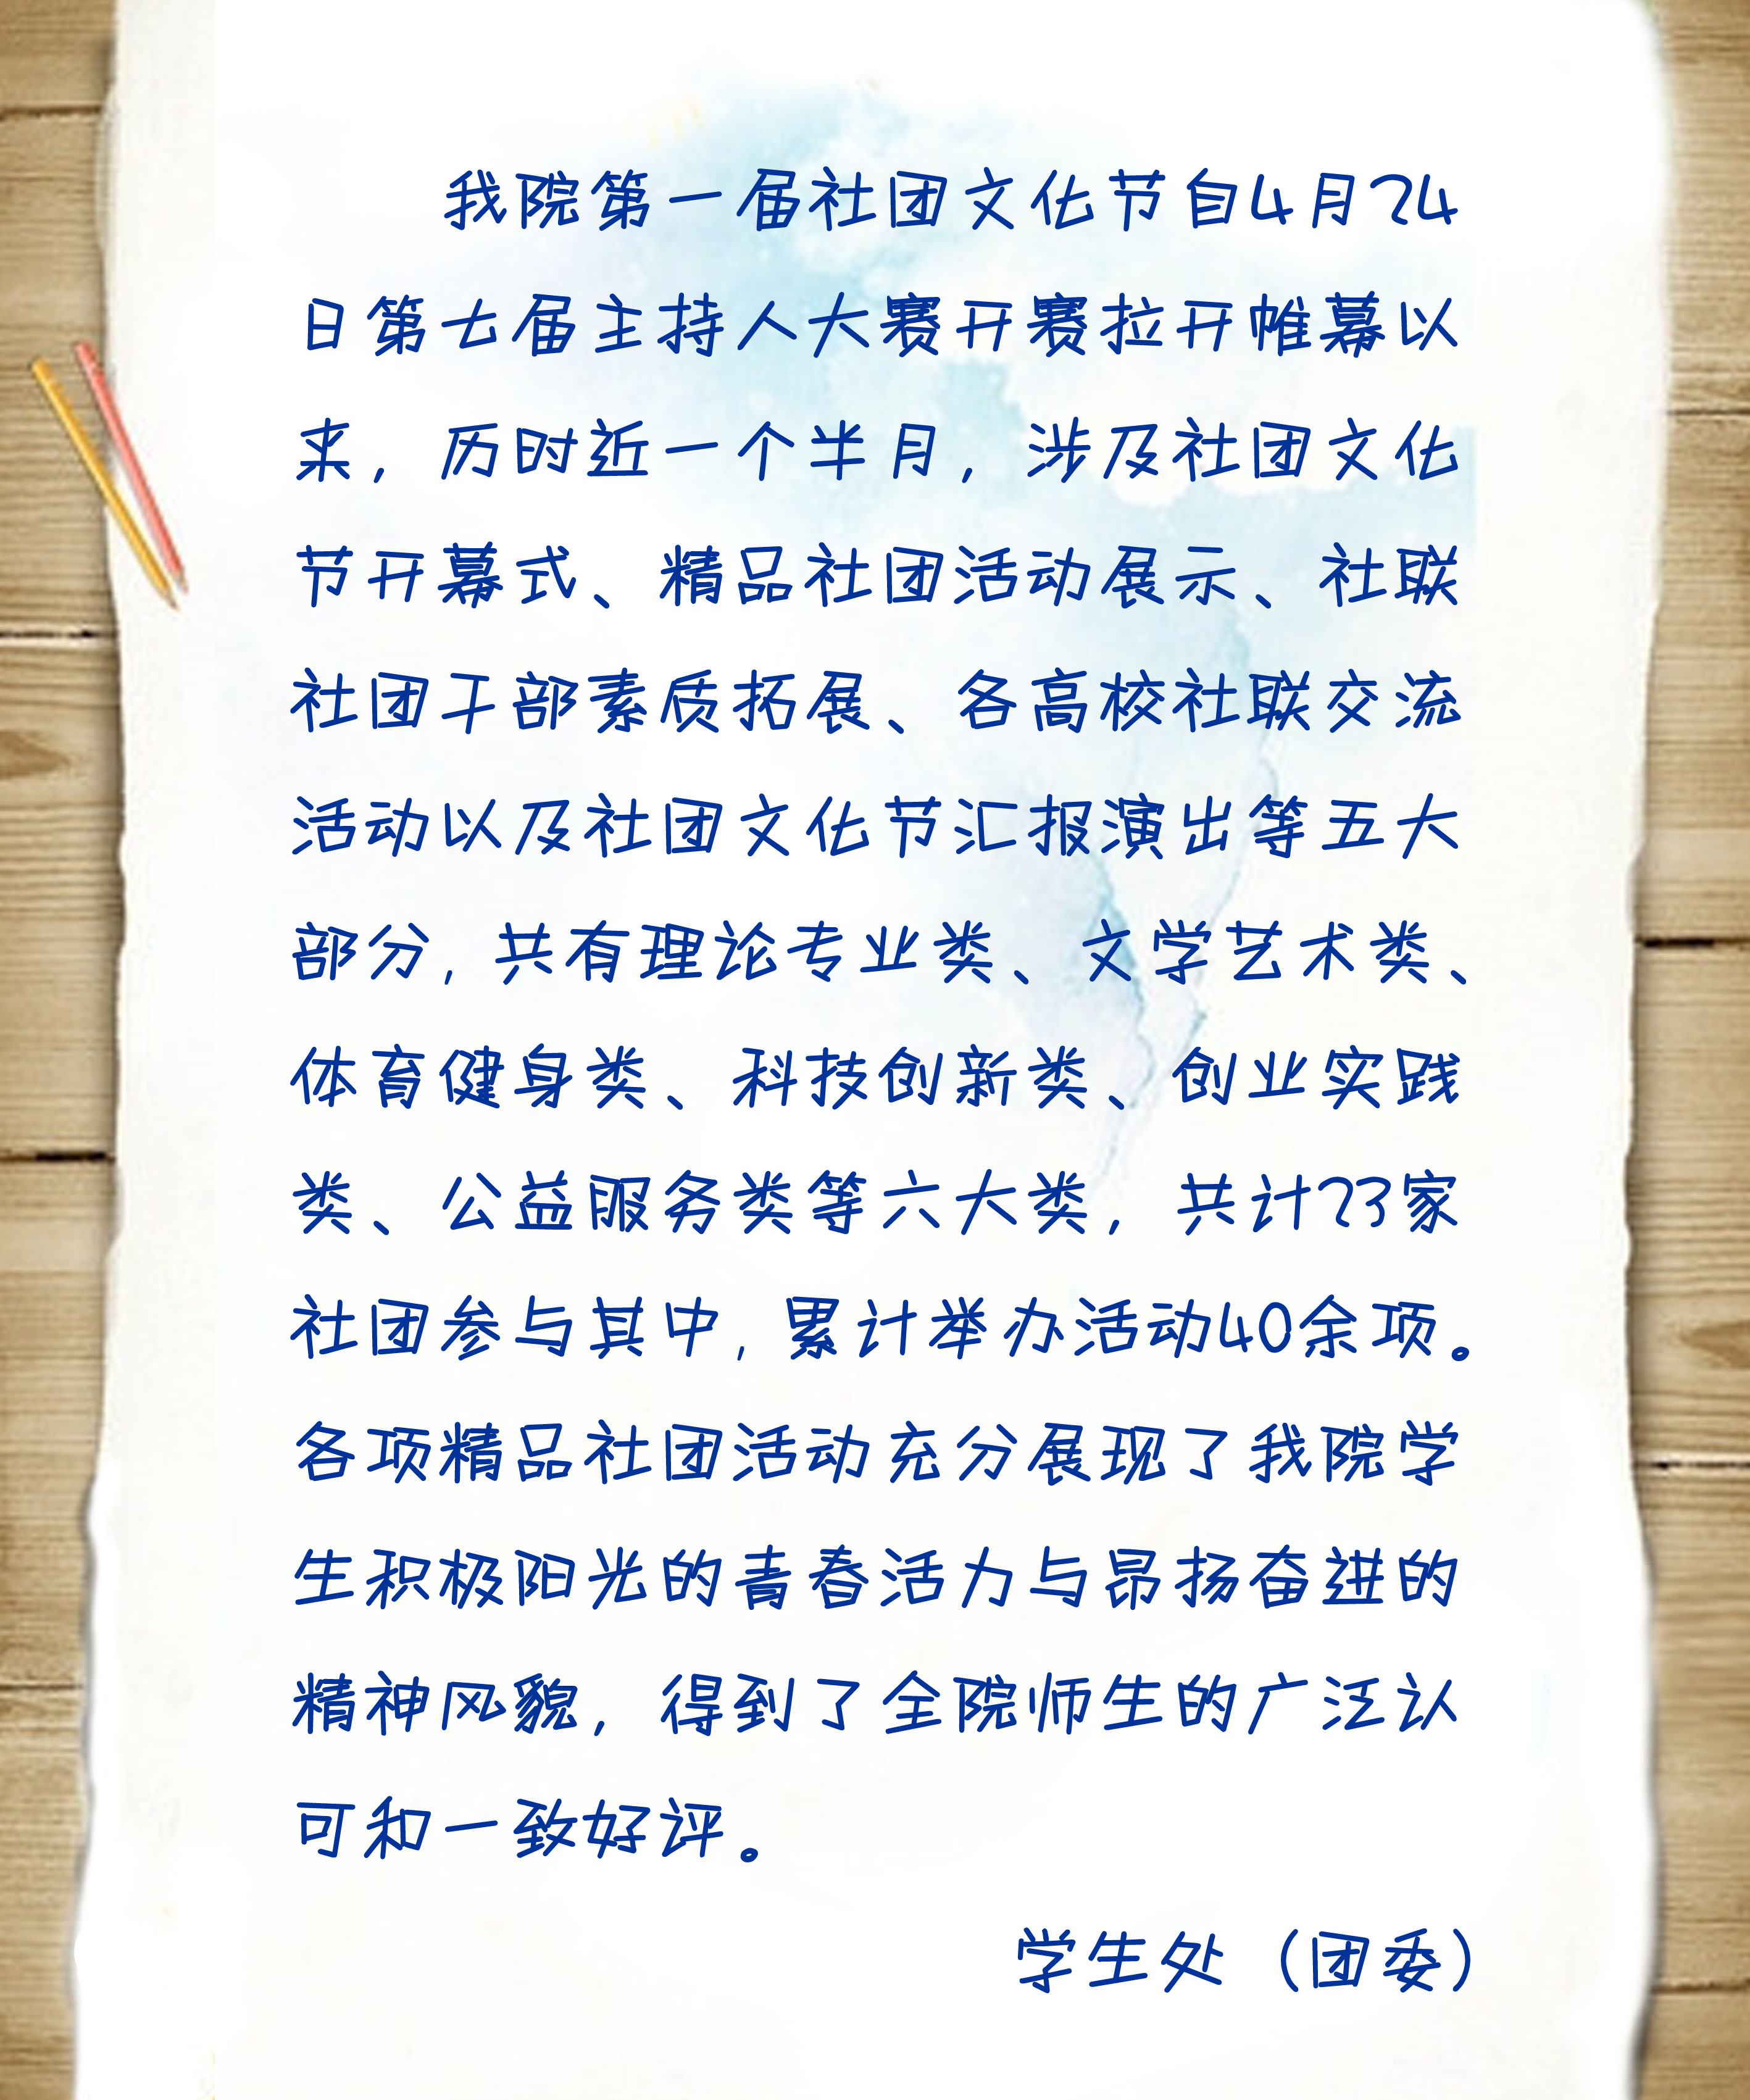 我院第一届社团文化节自4月24
日第七届主持人大赛开赛拉开帷幕以
来，历时近一个半月，涉及社团文化
节开幕式、精品社团活动展示、社联
社团干部素质拓展、各高校社联交流
活动以及社团文化节汇报演出等五大
部分，共有理论专业类、文学艺术类、
体育健身类、科技创新类、创业实践
类、公益服务类等六大类，共计23家
社团参与其中，累计举办活动40余项。
各项精品社团活动充分展现了我院学
生积极阳光的青春活力与昂扬奋进的
精神风貌，得到了全院师生的广泛认
可和一致好评。
学生处（团委）